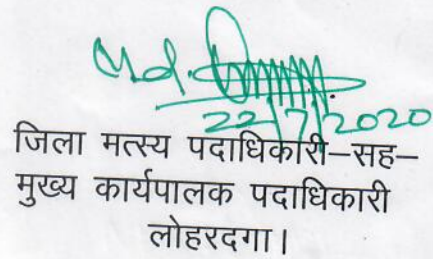 Md.
22/7/2020
जिला मत्स्य पदाधिकारी–सह–
मुख्य कार्यपालक पदाधिकारी
लोहरदगा।